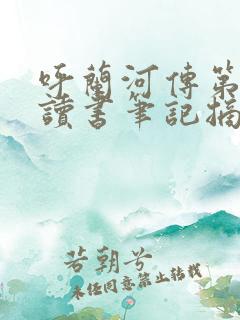 呼蘭河傳第
讀書筆記摘
若朝兮
未经同意禁止转载